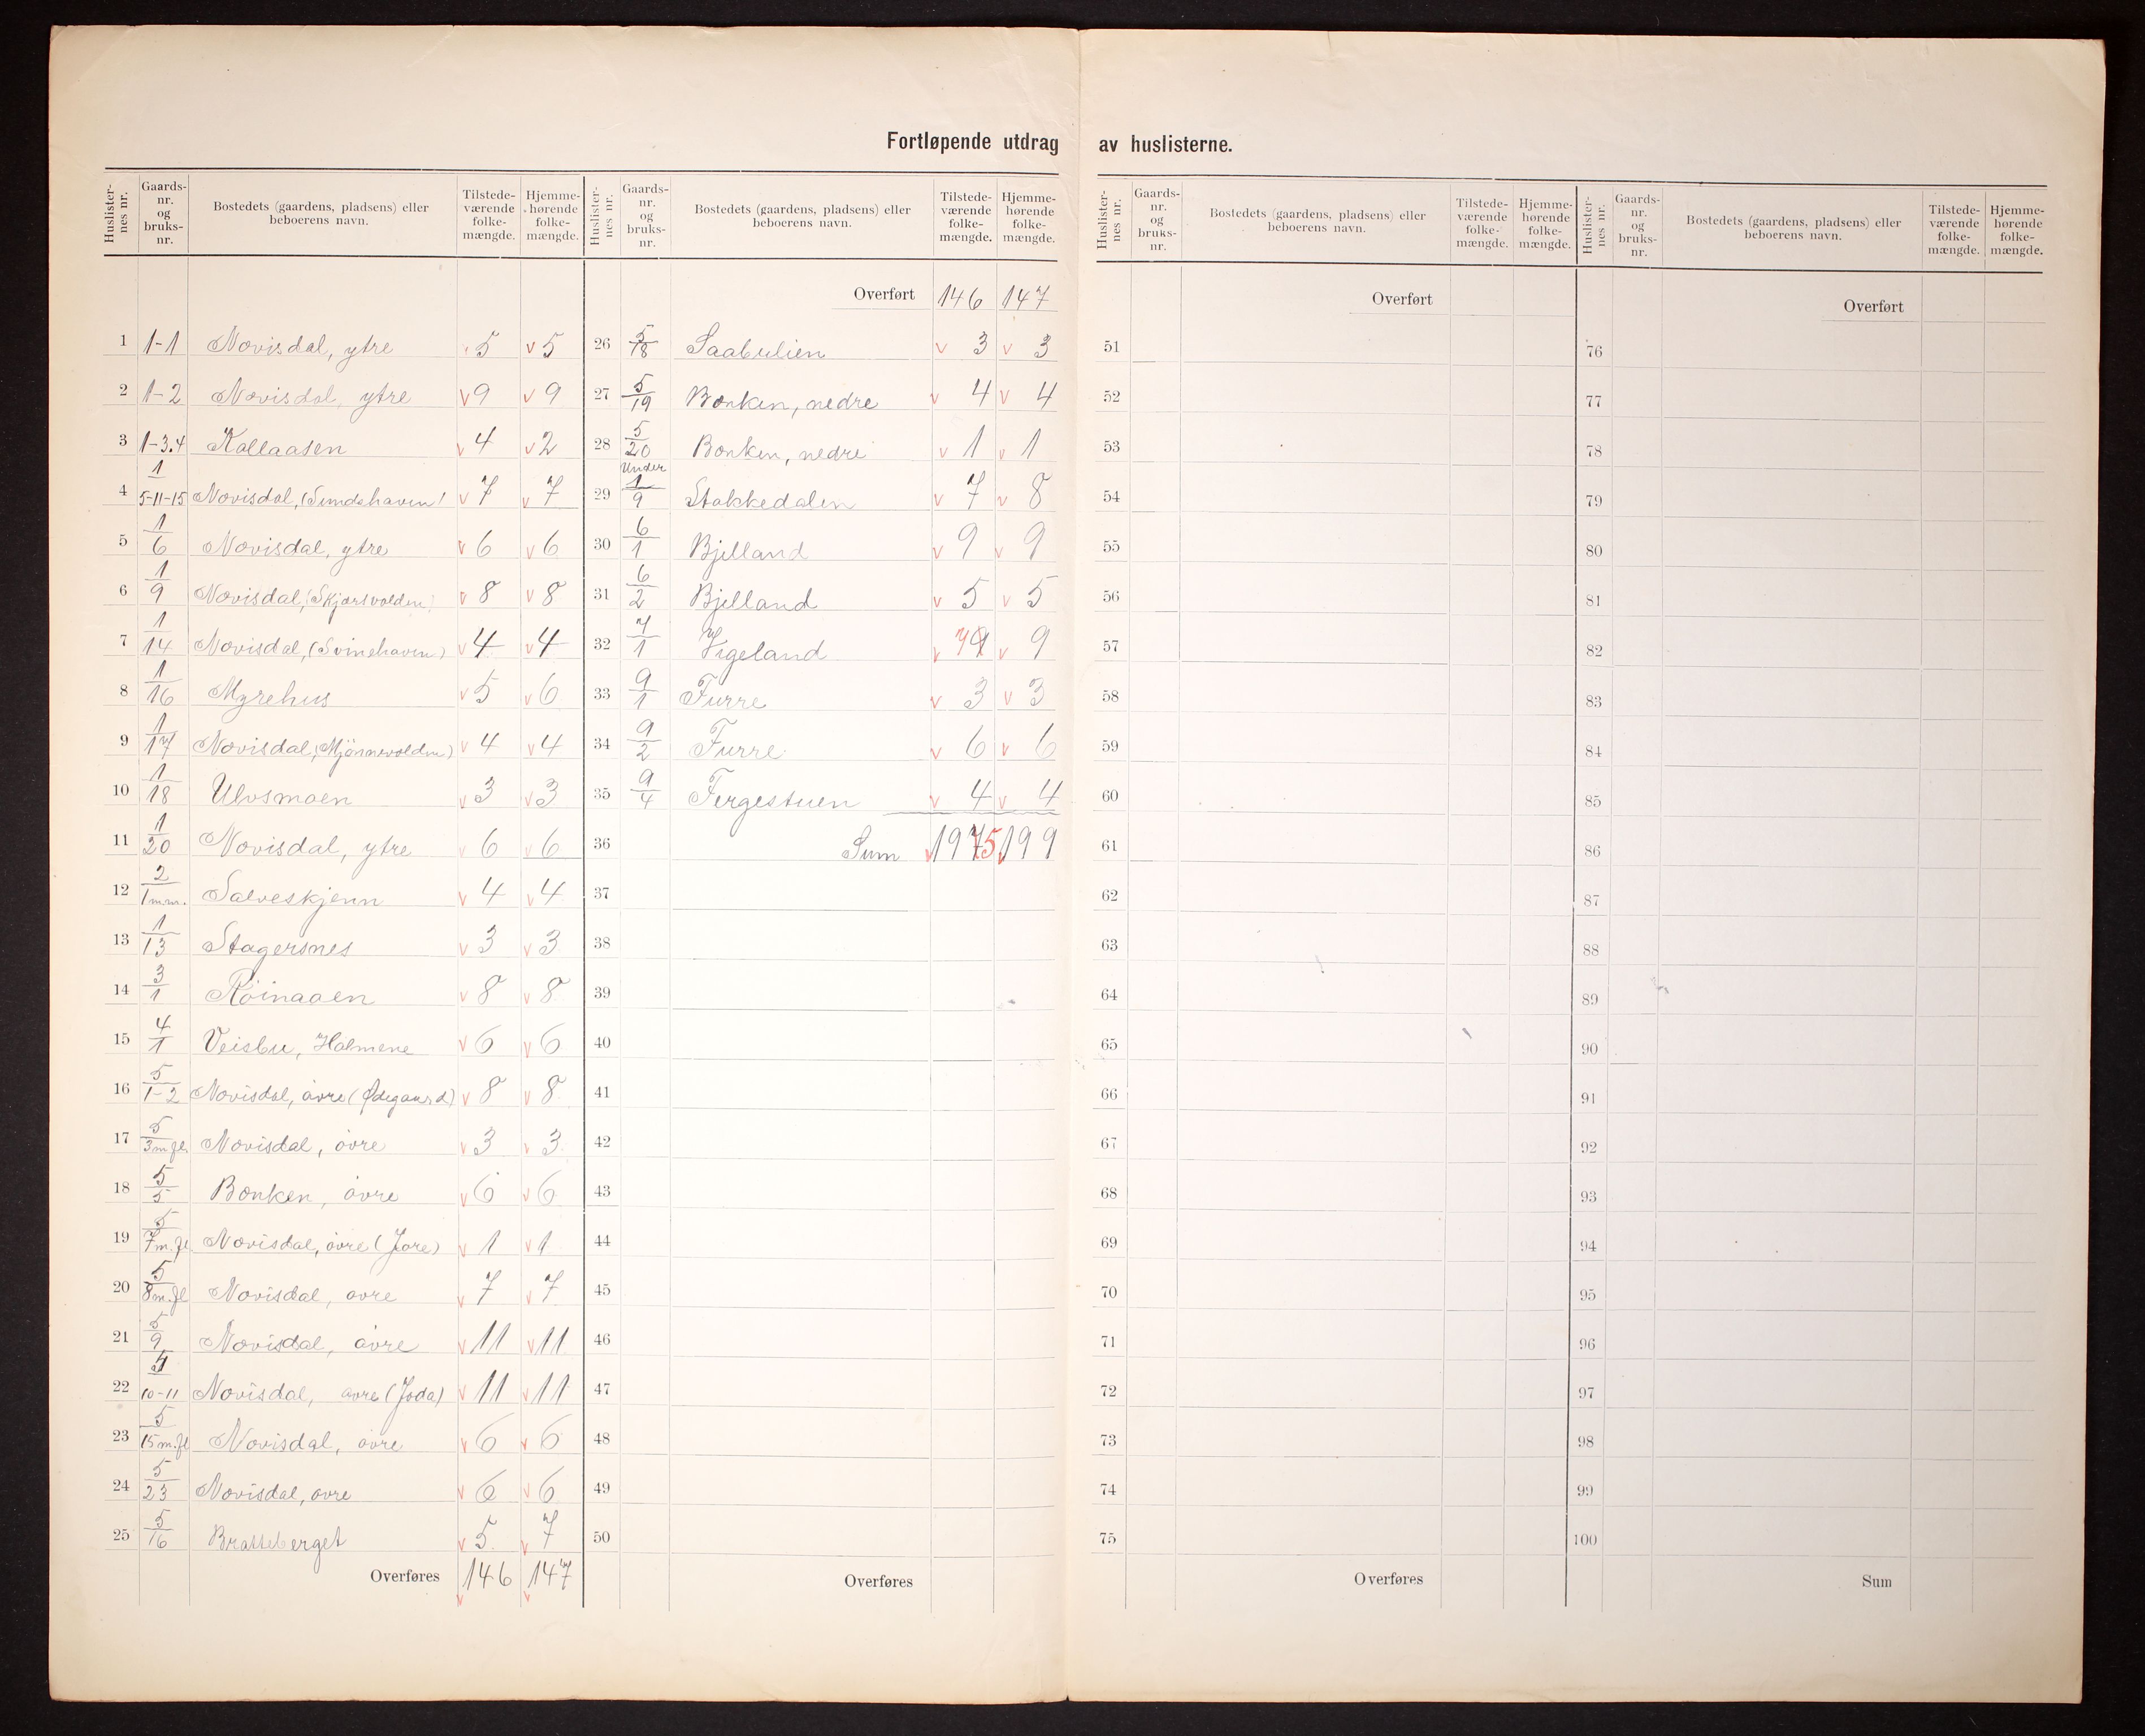 Fortløpende utdrag av huslisterne.
Huslisternes nr. Gaards-nr. og bruks-nr. Bostedets (gaardens, pladsens) eller beboerens navn. Tilstedeværende folkemængde. Hjemmehørende folkemængde.
1 1-1 Novisdal, ytre v 5 v 5
2 1-2 Novisdal, ytre v 9 v 9
3 1-3.4 Kallaasen v 4 v 2
4 1/5-11-15 Novisdal, (Sundshaven) v 7 v 7
5 1/6 Novisdal, ytre v 6 v 6
6 1/9 Novisdal, (Skjærsvolden) v 8 v 8
7 1/14 Novisdal, (Svinehaven) v 4 v 4
8 1/16 Myrehus v 5 v 6
9 1/17 Novisdal, (Mjönnevolden) v 4 v 4
10 1/18 Ulvsmoen v 3 v 3
11 1/20 Novisdal, ytre v 6 v 6
12 2/1 m.m. Salveskjenn v 4 v 4
13 1/13 Stagersnes v 3 v 3
14 3/1 Röinaaen v 8 v 8
15 4/1 Veisbu, Holmene v 6 v 6
16 5/1-2 Novisdal, övre (Ødegaard) v 8 v 8
17 5/3 m.fl. Novisdal, övre v 3 v 3
18 5/5 Bonken, övre v 6 v 6
19 5/7 m.fl. Novisdal, övre (Jore) v 1 v 1
20 5/8 m.fl Novisdal, övre v 7 v 7
21 5/9 Novisdal, övre v 11 v 11
22 5/10-11 Novisdal, övre (Joda) v 11 v 11
23 5/15 m.fl Novisdal, övre v 6 v 6
24 5/23 Novisdal, övre v 6 v 6
25 5/16 Bratteberget v 5 v 7
Overføres 146 147
Huslisternes nr. Gaards-nr. og bruks-nr. Bostedets (gaardens, pladsens) eller beboerens navn. Tilstedeværende folkemængde. Hjemmehørende folkemængde.
Overført 146 147
26 5/18 Saabulien v 3 v 3
27 5/19 Bonken, nedre v 4 v 4
28 5/20 Bonken, nedre v 1 v 1
29 Under 1/9 Stokkedalen v 7 v 8
30 6/1 Bjelland v 9 v 9
31 6/2 Bjelland v 5 v 5
32 7/1 Vigeland v 7 9 v 9
33 9/1 Furre v 3 v 3
34 9/2 Furre v 6 v 6
35 9/4 Fergestuen v 4 v 4
36 Sum 197 5 199
37
38
39
40
41
42
43
44
45
46
47
48
49
50
Overføres
Huslisternes nr. Gaards-nr. og bruks-nr. Bostedets (gaardens, pladsens) eller beboerens navn. Tilstedeværende folkemængde. Hjemmehørende folkemængde.
Overført
51
52
53
54
55
56
57
58
59
60
61
62
63
64
65
66
67
68
69
70
71
72
73
74
75
Overføres
Huslisternes nr. Gaards-nr. og bruks-nr. Bostedets (gaardens, pladsens) eller beboerens navn. Tilstedeværende folkemængde. Hjemmehørende folkemængde.
Overført
76
77
78
79
80
81
82
83
84
85
86
87
88
89
90
91
92
93
94
95
96
97
98
99
100
Sum